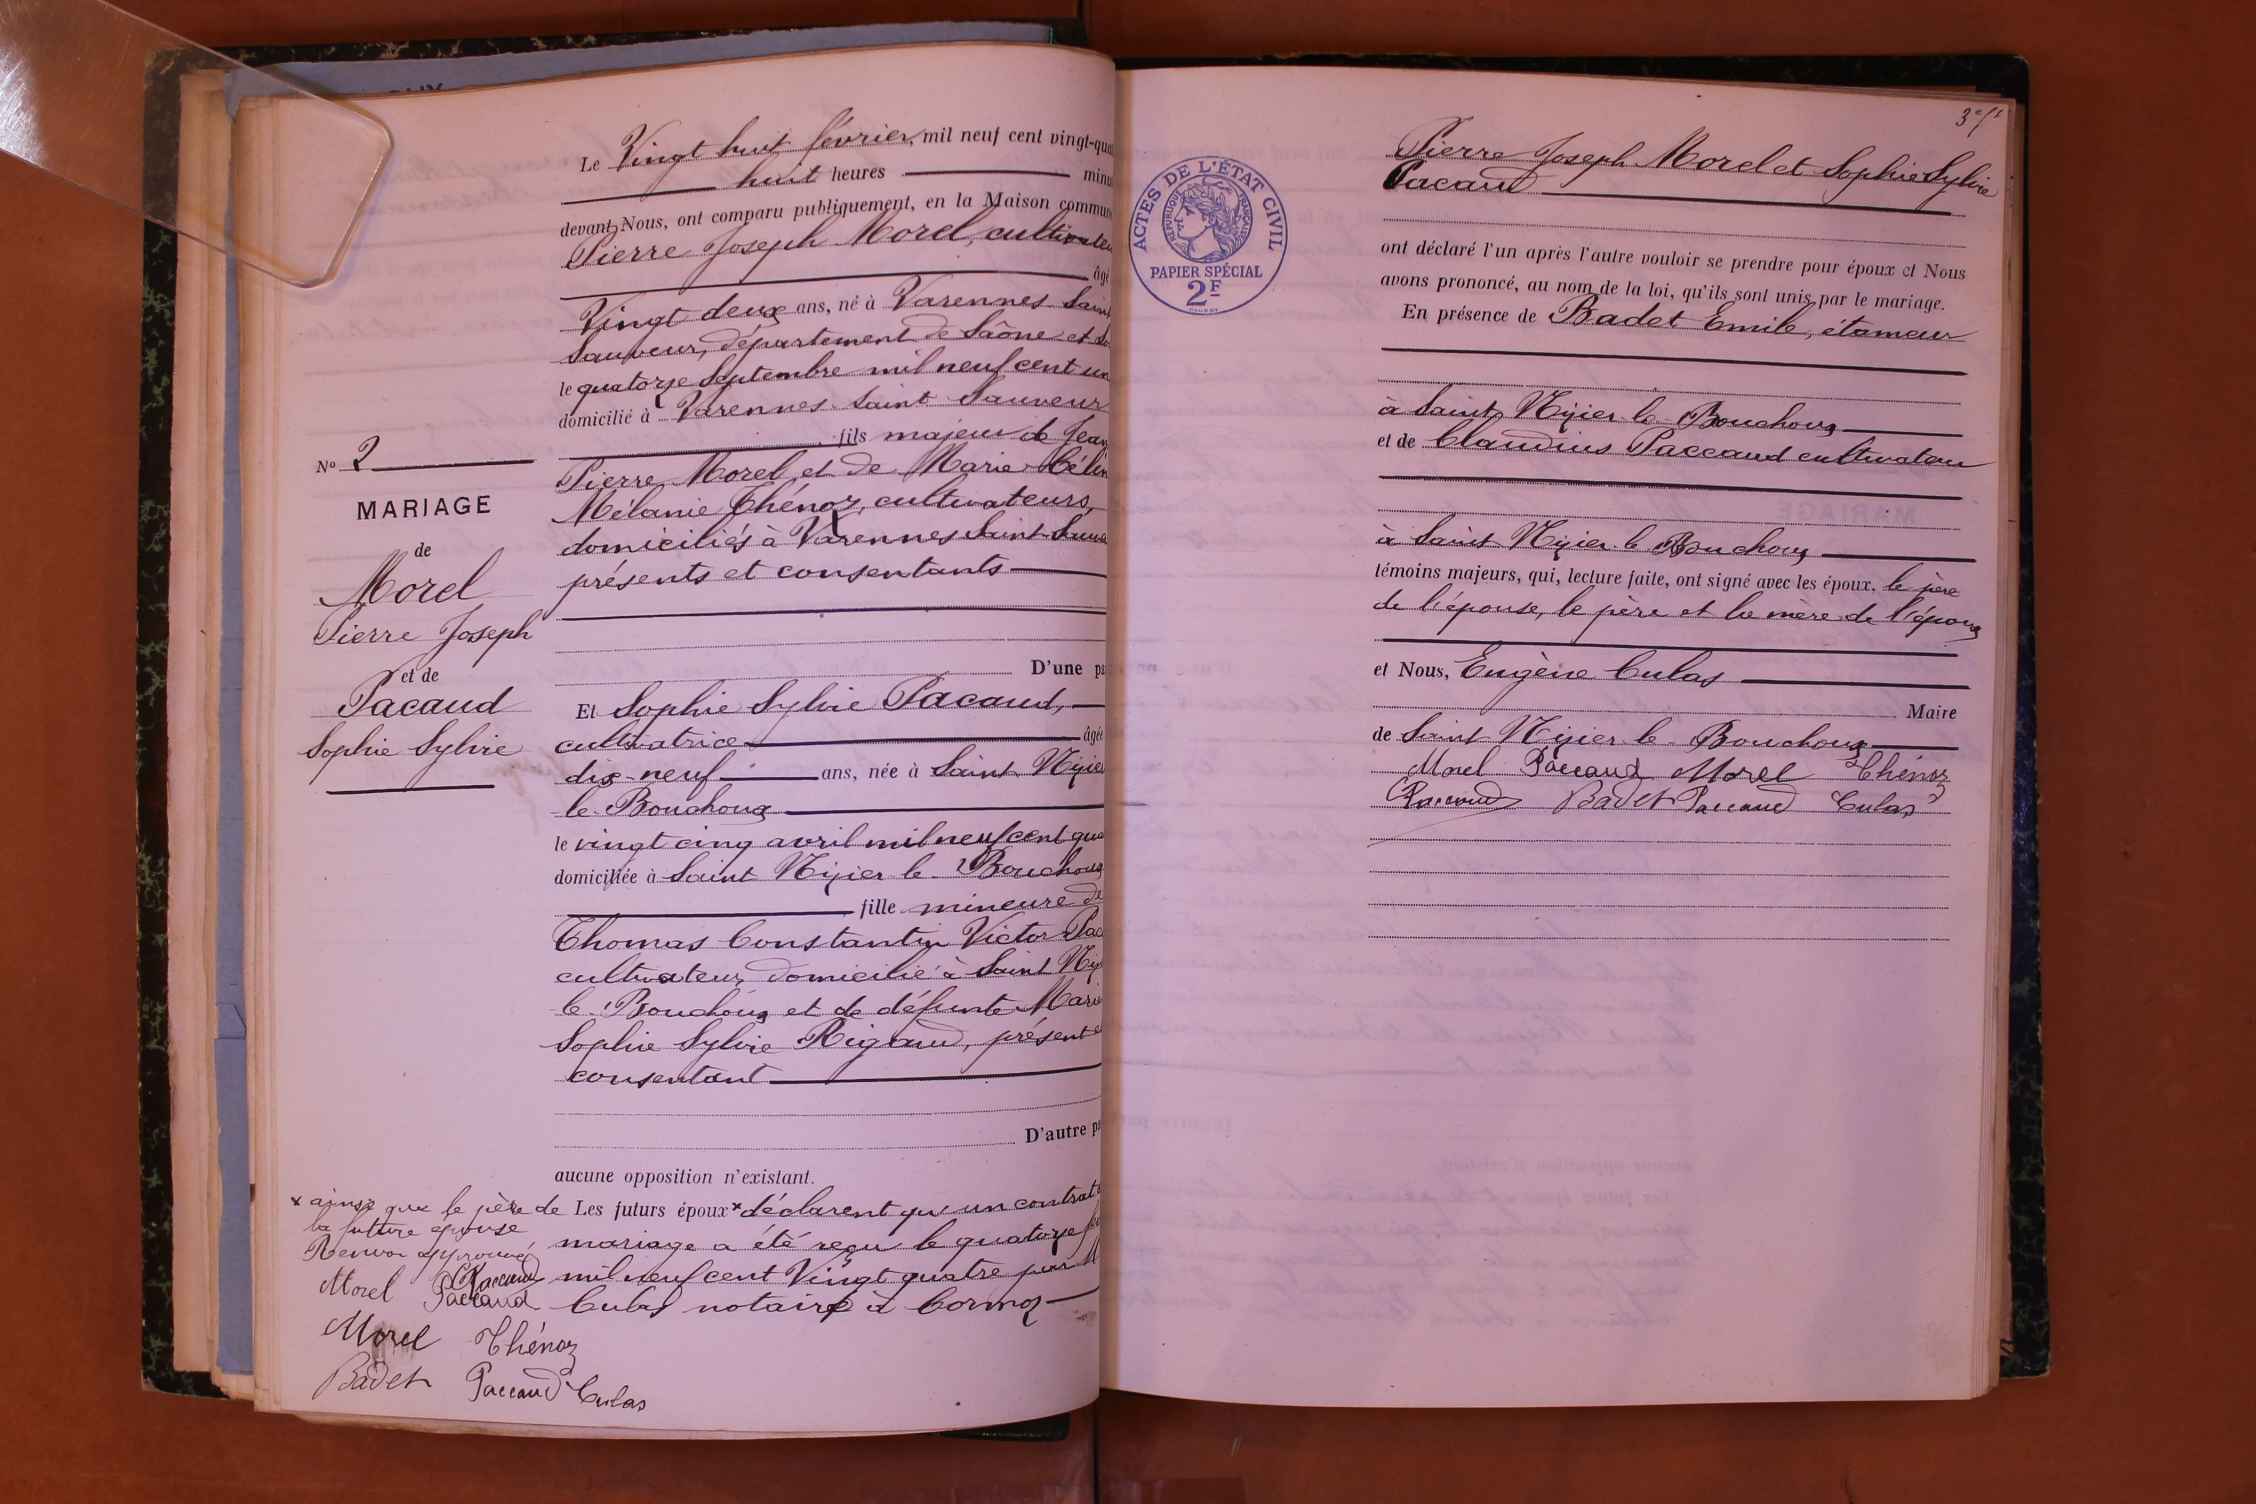 Le Vingt huit février, mil neuf cent vingt-qua
huit heures minu
devant Nous, ont comparu publiquement, en la Maison commun
Pierre Joseph Morel, cultivateu
âgé
Vingt deux ans, né à Varennes Saint
Sauveur, département de Saône et Lo
le quatorze Septembre mil neuf cent un
domicilié à Varennes Saint Sauveur
fils majeur de Jean
Pierre Morel et de Marie Célin
Mélanie Thénoz, cultivateurs,
domiciliés à Varennes Saint-Sauve
présents et consentants
D'une pa
Et Sophie Sylvie Pacaud,
cultivatrice âgée
dix-neuf ans, née à Saint Nizier
le Bouchoux
le vingt cinq avril mil neuf cent qua
domiciliée à Saint Nizier le Bouchoux
fille mineure de
Thomas Constantin Victor Pac
cultivateur, domicilié à Saint Niz
le Bouchoux et de défunte Marie
Sophie Sylvie Rigaud, présent et
consentant
D'autre pa
aucune opposition n'existant.
Les futurs époux* déclarent qu'un contrat
mariage a été reçu le quatorze
mil neuf cent Vingt quatre par M
Culas notaire à Cormoz
No 2
MARIAGE
de
Morel
Pierre Joseph
et de
Pacaud
Sophie Sylvie
x ainsi que le père de
la future épouse
Renvoi approuvé
Morel Paccaud
Paccaud
Morel Thénoz
Badet Paccaud Culas
ACTES DE L'ÉTAT CIVIL
RÉPUBLIQUE FRANÇAISE
PAPIER SPÉCIAL
2F
Pierre Joseph Morel et Sophie Sylvie
Pacaud
ont déclaré l'un après l'autre vouloir se prendre pour époux et Nous
avons prononcé, au nom de la loi, qu'ils sont unis par le mariage.
En présence de Badet Emile, étameur
à Saint Nizier le Bouchoux
et de Claudius Paccaud cultivateur
à Saint Nizier le Bouchoux
témoins majeurs, qui, lecture faite, ont signé avec les époux, le père
de l'épouse, le père et la mère de l'époux
et Nous, Eugène Culas
Maire
de Saint Nizier le Bouchoux
Morel Paccaud Morel Thénoz
Paccaud Badet Paccaud Culas